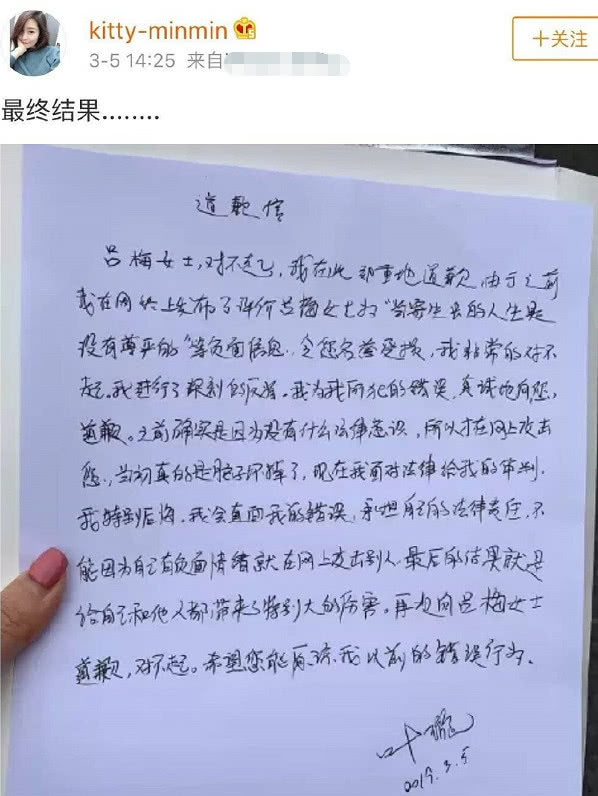 kitty-minmin
3-5 14:25 来自
十关注
最终结果........
道歉信
吕梅女士,对不起,我在此郑重地道歉 由于之前
我在网络上发布了评价吕梅女士为"当寄生虫的人生是
没有尊严的"等负面信息,令您名誉受损,我非常的对不
起。我进行了深刻的反省。我为我所犯的错误,真诚地向您,
道歉。之前确实是因为没有什么法律意识,所以才在网上攻击
您,当初真的是脑子坏掉了,现在我面对法律给我的审判,
我特别后悔。我会直面我的错误,承担自己的法律责任,不
能因为自己有负面情绪就在网上攻击别人,最后的结果就是
给自己和他人都带来了特别大的伤害。再次向吕梅女士
道歉,对不起。希望您能原谅我以前的错误行为。
叶璇
2019.3.5